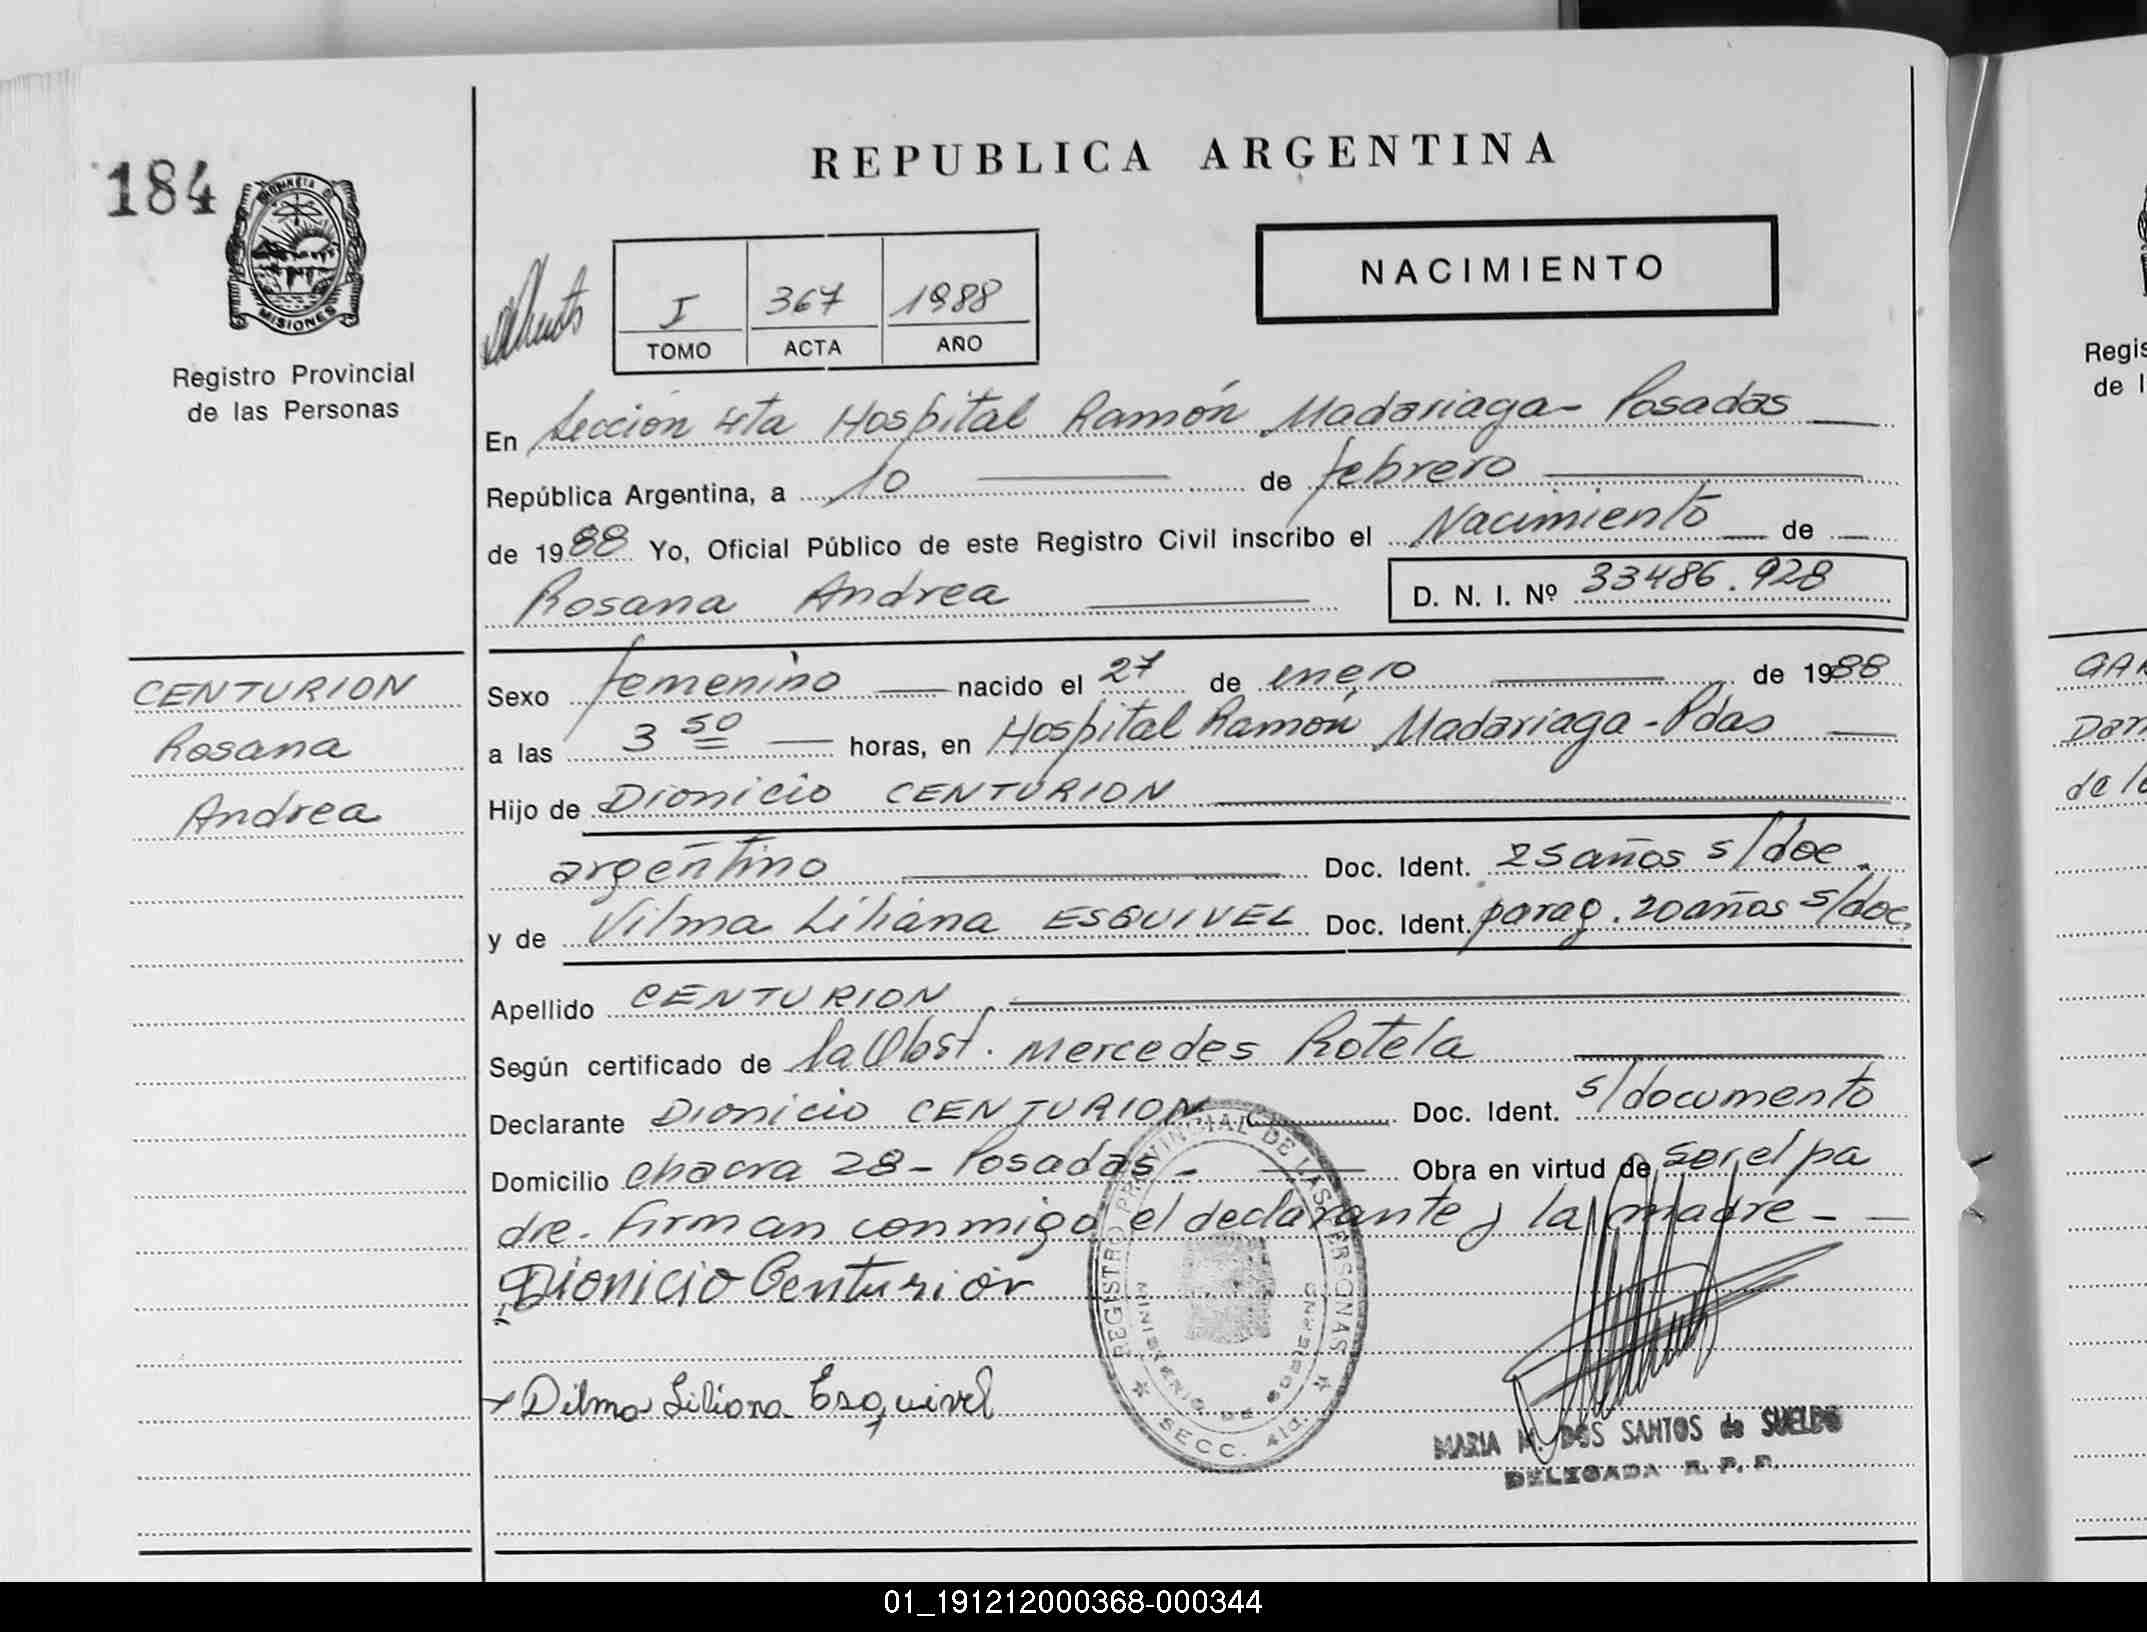 REPUBLICA ARGENTINA
184
PROVINCIA DE
MISIONES
Registro Provincial
de las Personas
I 367 1988
TOMO ACTA AÑO
NACIMIENTO
En Sección 4ta Hospital Ramón Madariaga - Posadas
República Argentina, a 10 de febrero
de 1988 Yo, Oficial Público de este Registro Civil inscribo el Nacimiento de
Rosana Andrea
D. N. I. Nº 33486.928
CENTURION
Rosana
Andrea
Sexo femenino nacido el 27 de enero de 1988
a las 3 50 horas, en Hospital Ramón Madariaga - Pdas
Hijo de Dionicio CENTURION
argentino Doc. Ident. 25 años s/doc.
y de Vilma Liliana ESQUIVEL Doc. Ident. parag. 20 años s/doc.
Apellido CENTURION
Según certificado de la Obst. Mercedes Rotela
Declarante Dionicio CENTURION Doc. Ident. s/documento
Domicilio chacra 28 - Posadas - Obra en virtud de ser el pa
dre. Firman conmigo el declarante y la madre -
Dionicio Centurion
Dilma Liliana Esquivel
REGISTRO PROVINCIAL DE LAS PERSONAS
MINISTERIO DE GOBIERNO
SECC. 4ta.
MARIA M. DOS SANTOS de SUELDO
DELEGADA R. P. P.
Regis
de l
GAR
Dan
de lo
01_191212000368-000344